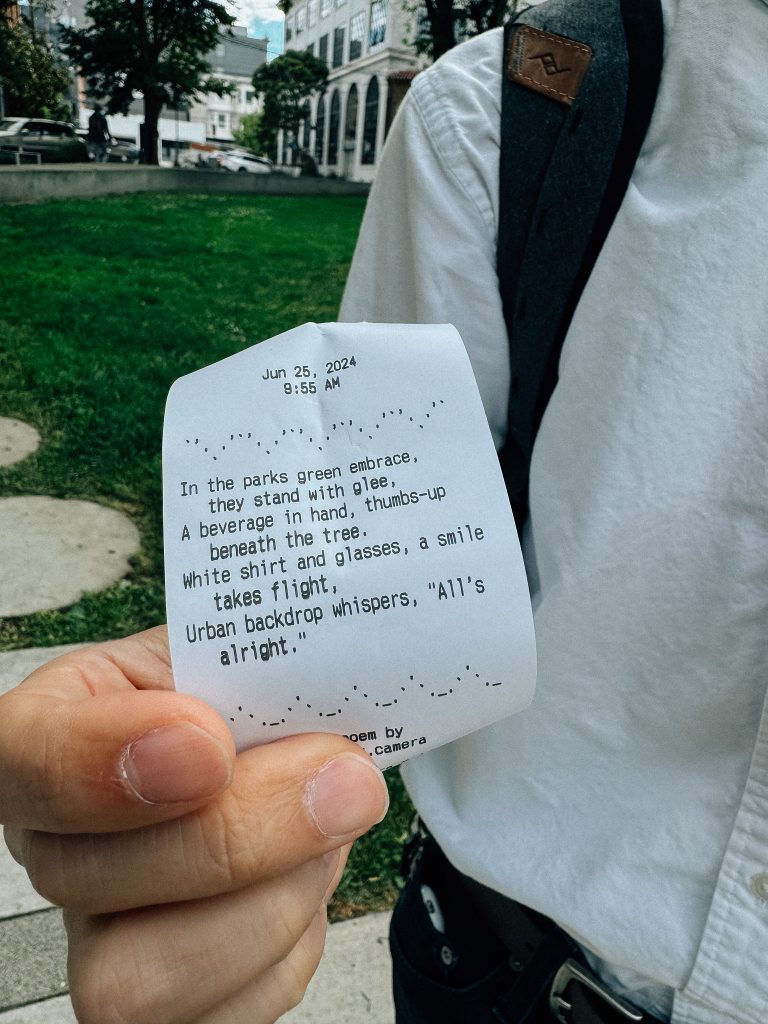 Jun 25, 2024
9:55 AM
In the parks green embrace,
they stand with glee,
A beverage in hand, thumbs-up
beneath the tree.
White shirt and glasses, a smile
takes flight,
Urban backdrop whispers, "All's
alright."
by
.camera